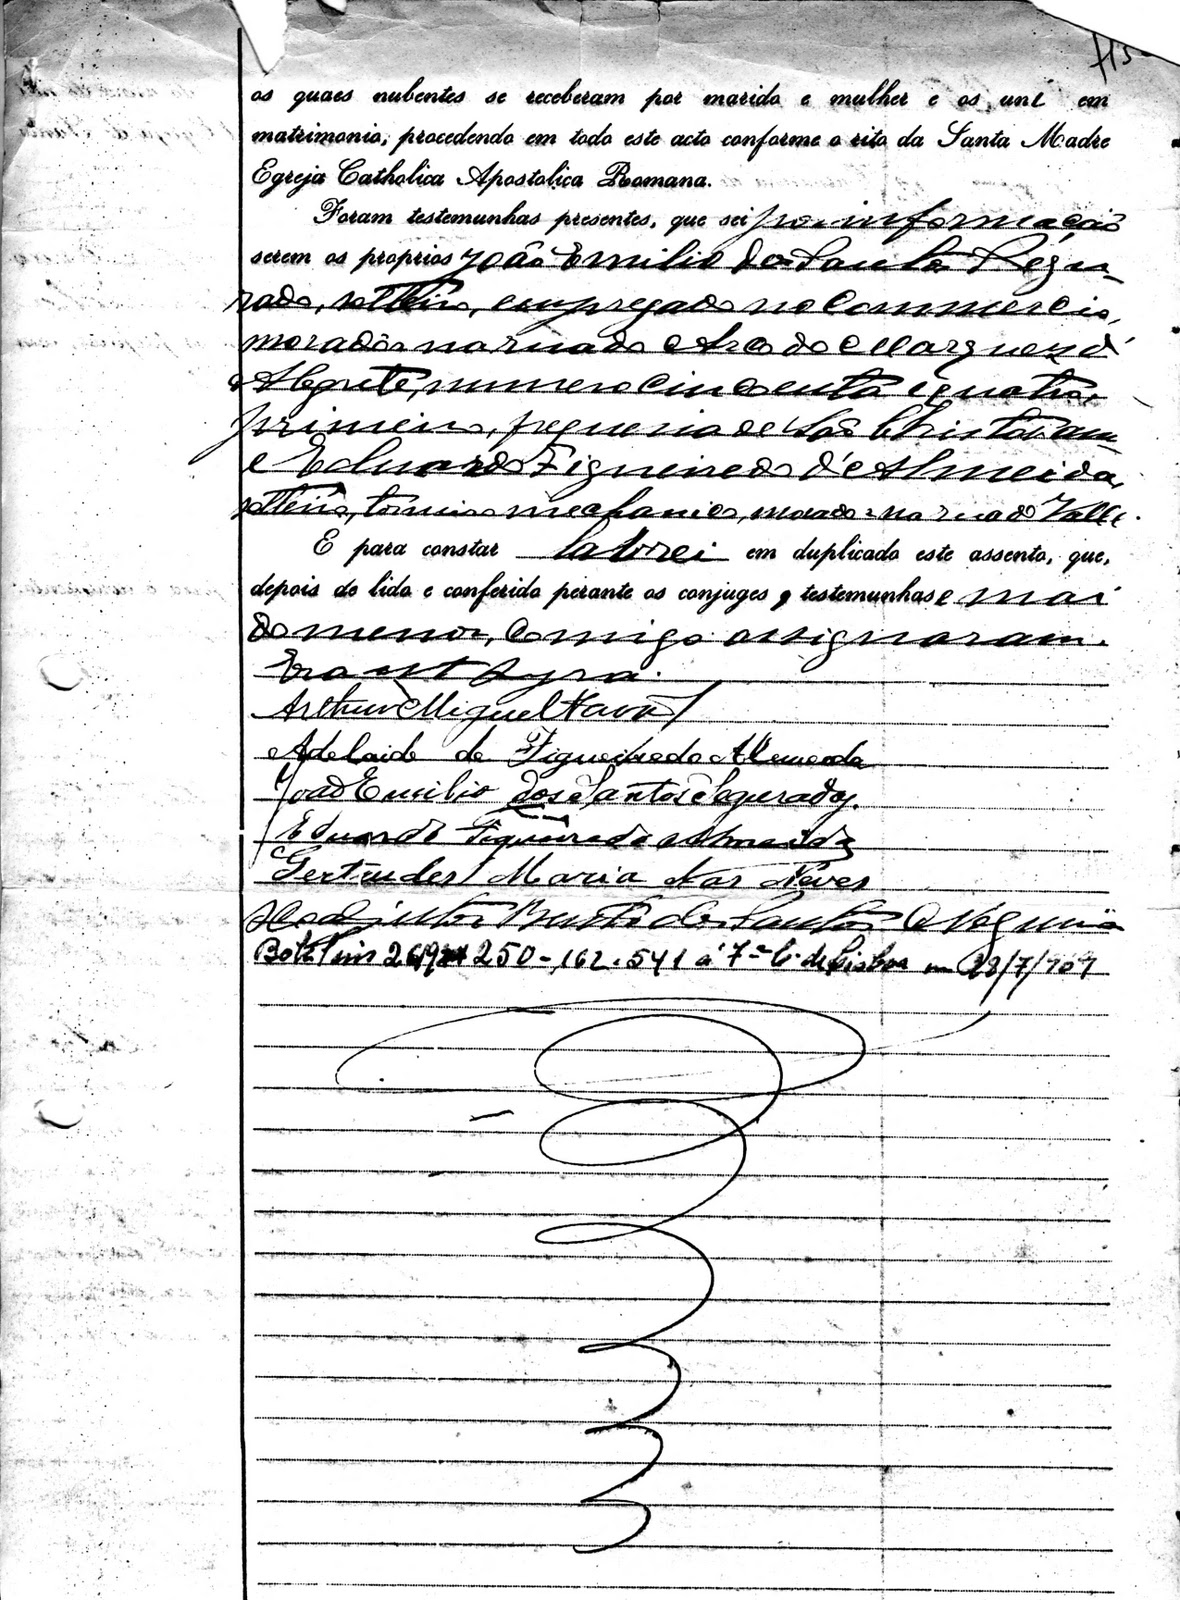 113
os quaes nubentes se receberam por marido e mulher e os uni em
matrimonio, procedendo em todo este acto conforme o rito da Santa Madre
Egreja Catholica Apostolica Romana.
Foram testemunhas presentes, que sei por informação
serem os proprios João Emilio dos Santos Segu-
rado, solteiro, empregado no Commercio,
morador na rua do Arco do Marquez d'
Alegrete, numero cincoenta e quatro,
primeiro, freguezia de São Christovam
e Eduardo Figueiredo d'Almeida,
solteiro, torneiro mechanico, morador na rua do Valle.
E para constar lavrei em duplicado este assento, que,
depois de lido e conferido perante os conjuges, testemunhas e mãi
do menor, comigo assignaram.
Era ut supra.
Arthur Miguel
Adelaide de Figueiredo Almeida
João Emilio dos Santos Segurado.
Eduardo Figueiredo Almeida
Gertrudes Maria das Neves
O Coadjutor dos Santos
Boletins 250-162.541 á 7ª C. de Lisboa em 28/7/909